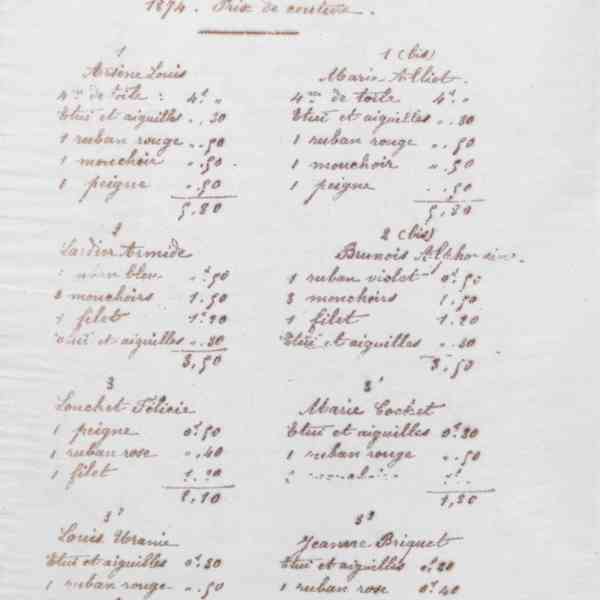 1874. Prix de couture.
1
Arsène Louis
4m de toile : 4f "
Etui et aiguilles ". 30
1 ruban rouge ". 50
1 mouchoir ". 50
1 peigne ". 50
5,80
1 (bis)
Marie Alliot.
4m de toile 4f "
Etui et aiguilles ". 30
1 ruban rouge ". 50
1 mouchoir ". 50
1 peigne ". 50
5,80
2
Armide
bleu "f 50
3 mouchoirs 1.50
1 filet 1f 20
Etui et aiguilles ". 30
3,50
2 (bis)
Brunois
1 ruban violet 0f 50
3 mouchoirs 1.50
1 filet 1.20
Etui et aiguilles ". 30
3,50
3
Louchet Félicie
1 peigne 0f 50
1 ruban rose ". 40
1 filet
3'
Marie Cocket
Etui et aiguilles 0f 30
1 ruban rouge ". 50
3'
Louis Uranie
Etui et aiguilles 0f 30
1 ruban rouge ". 50
Jeanne Briquet
Etui et aiguilles
1 ruban rose 0f 40